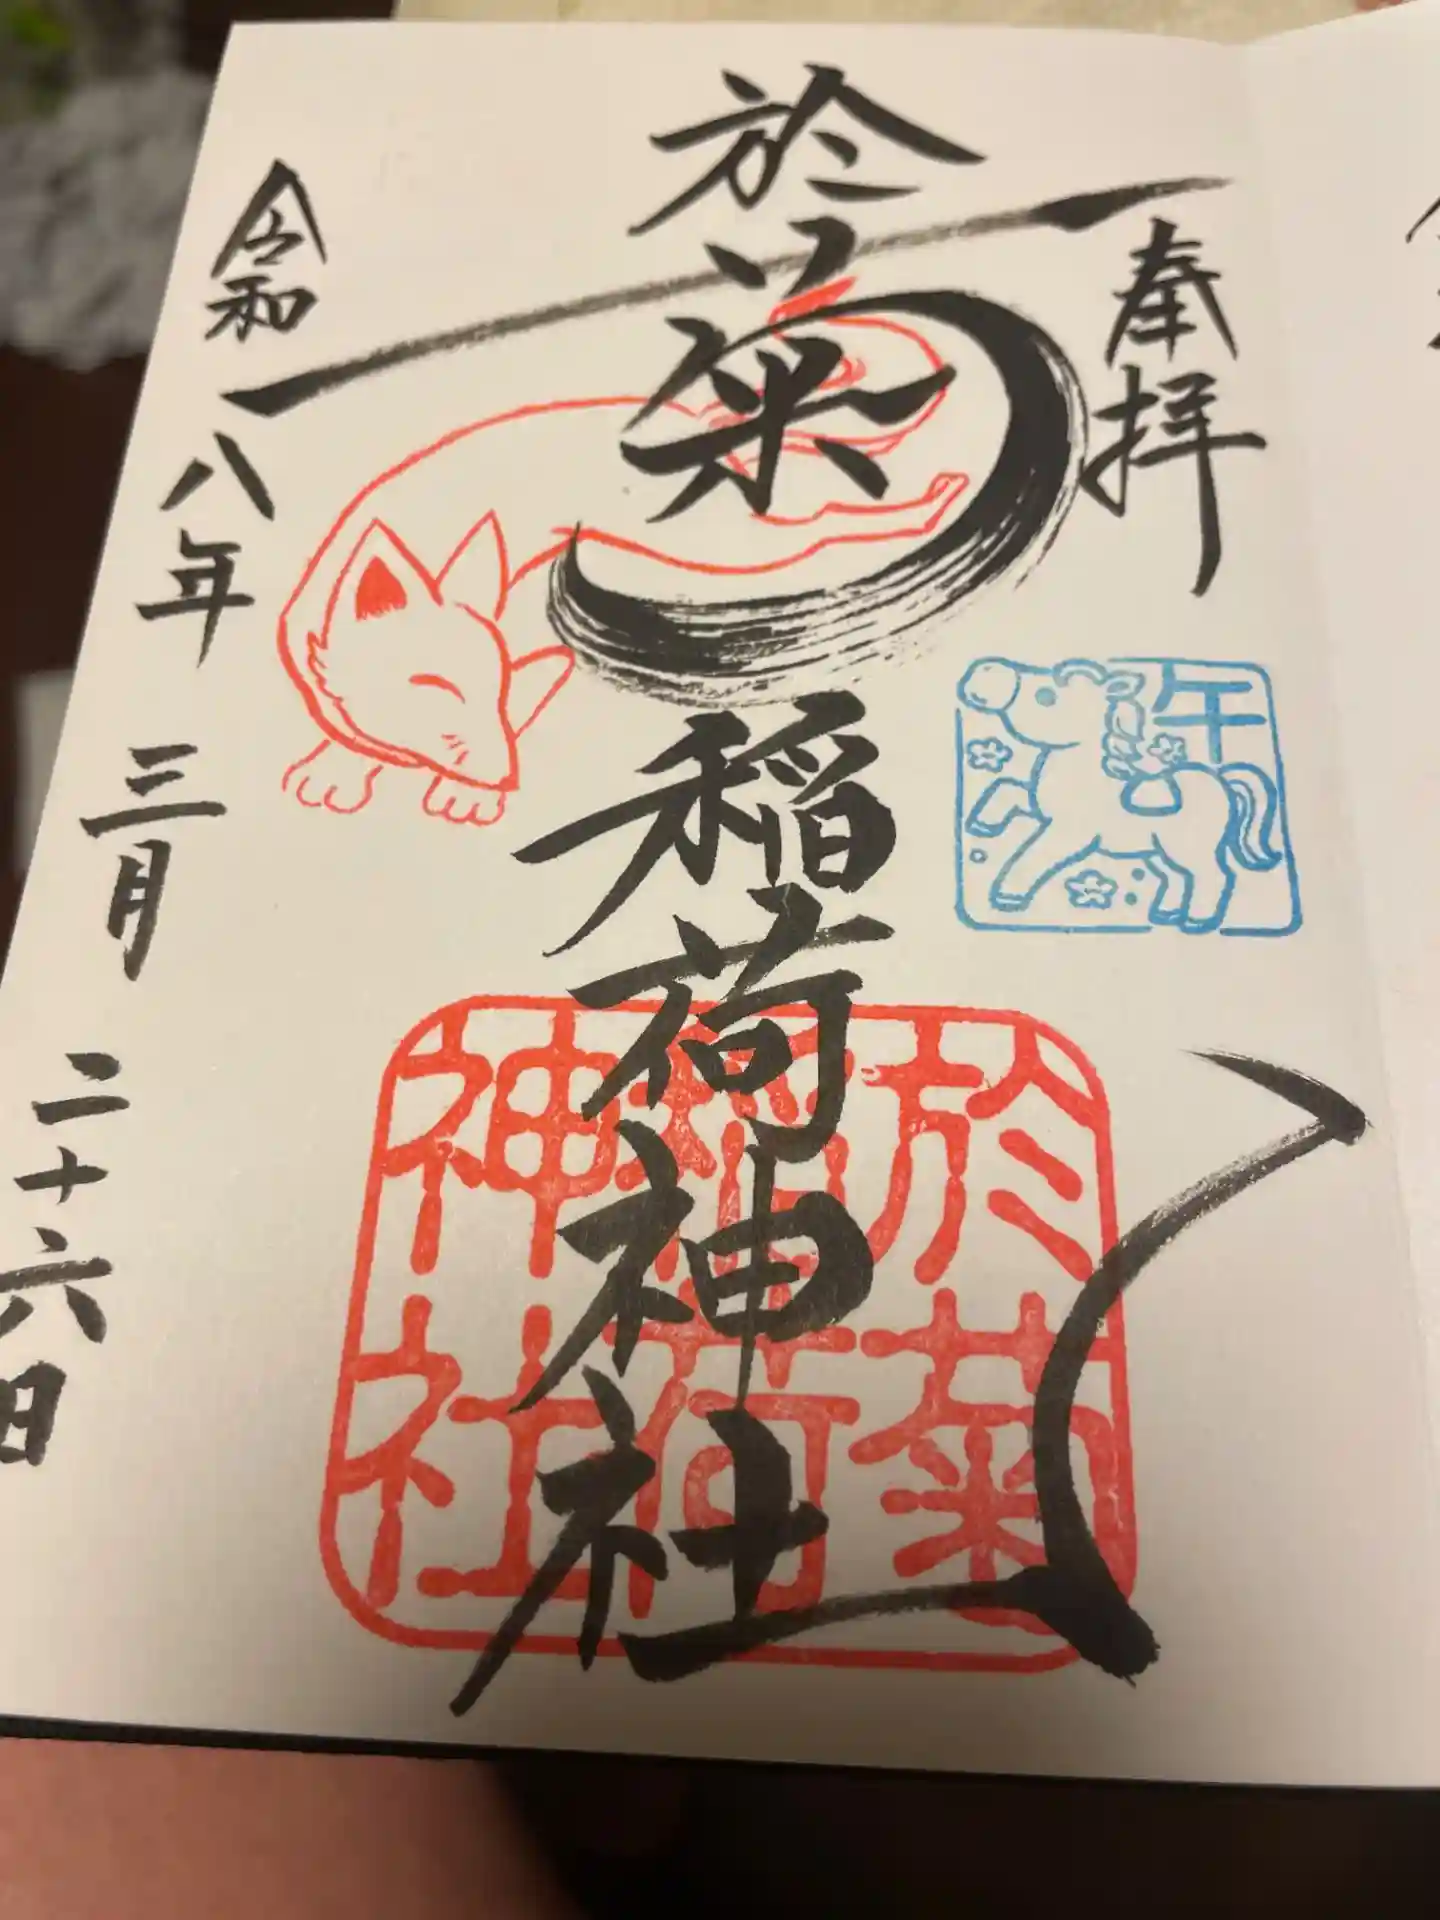 奉拝
午
於菊稲荷神社
於菊
稲荷
神社
令和八年三月二十六日